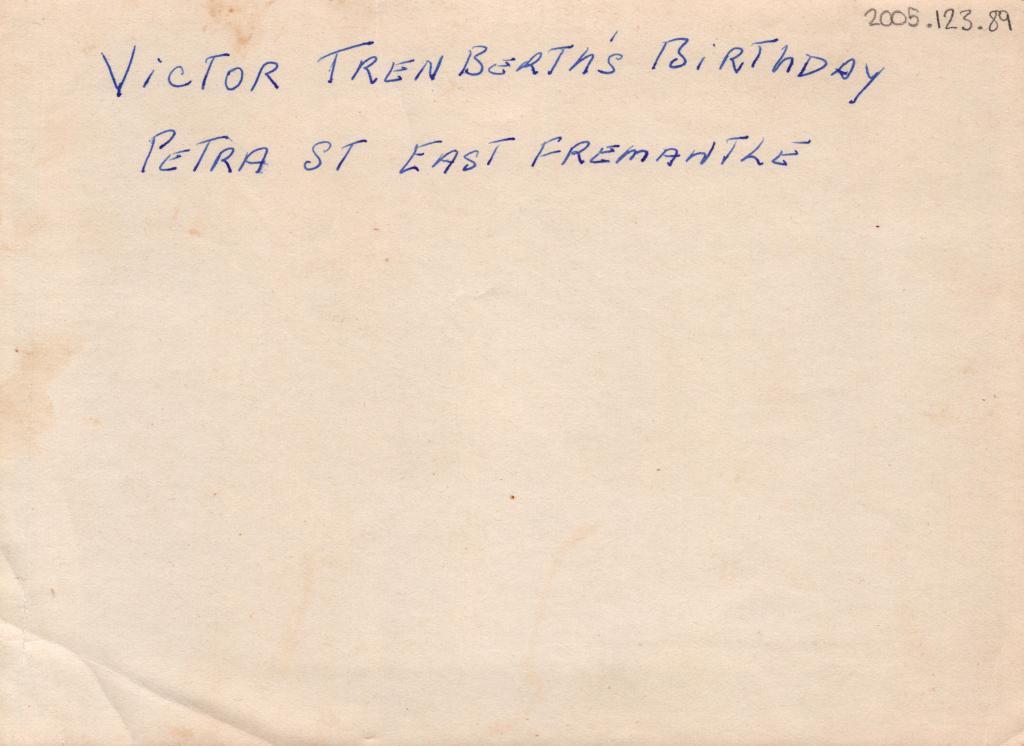 2005.123.89
VICTOR TRENBERTH'S BIRTHDAY
PETRA ST EAST FREMANTLE